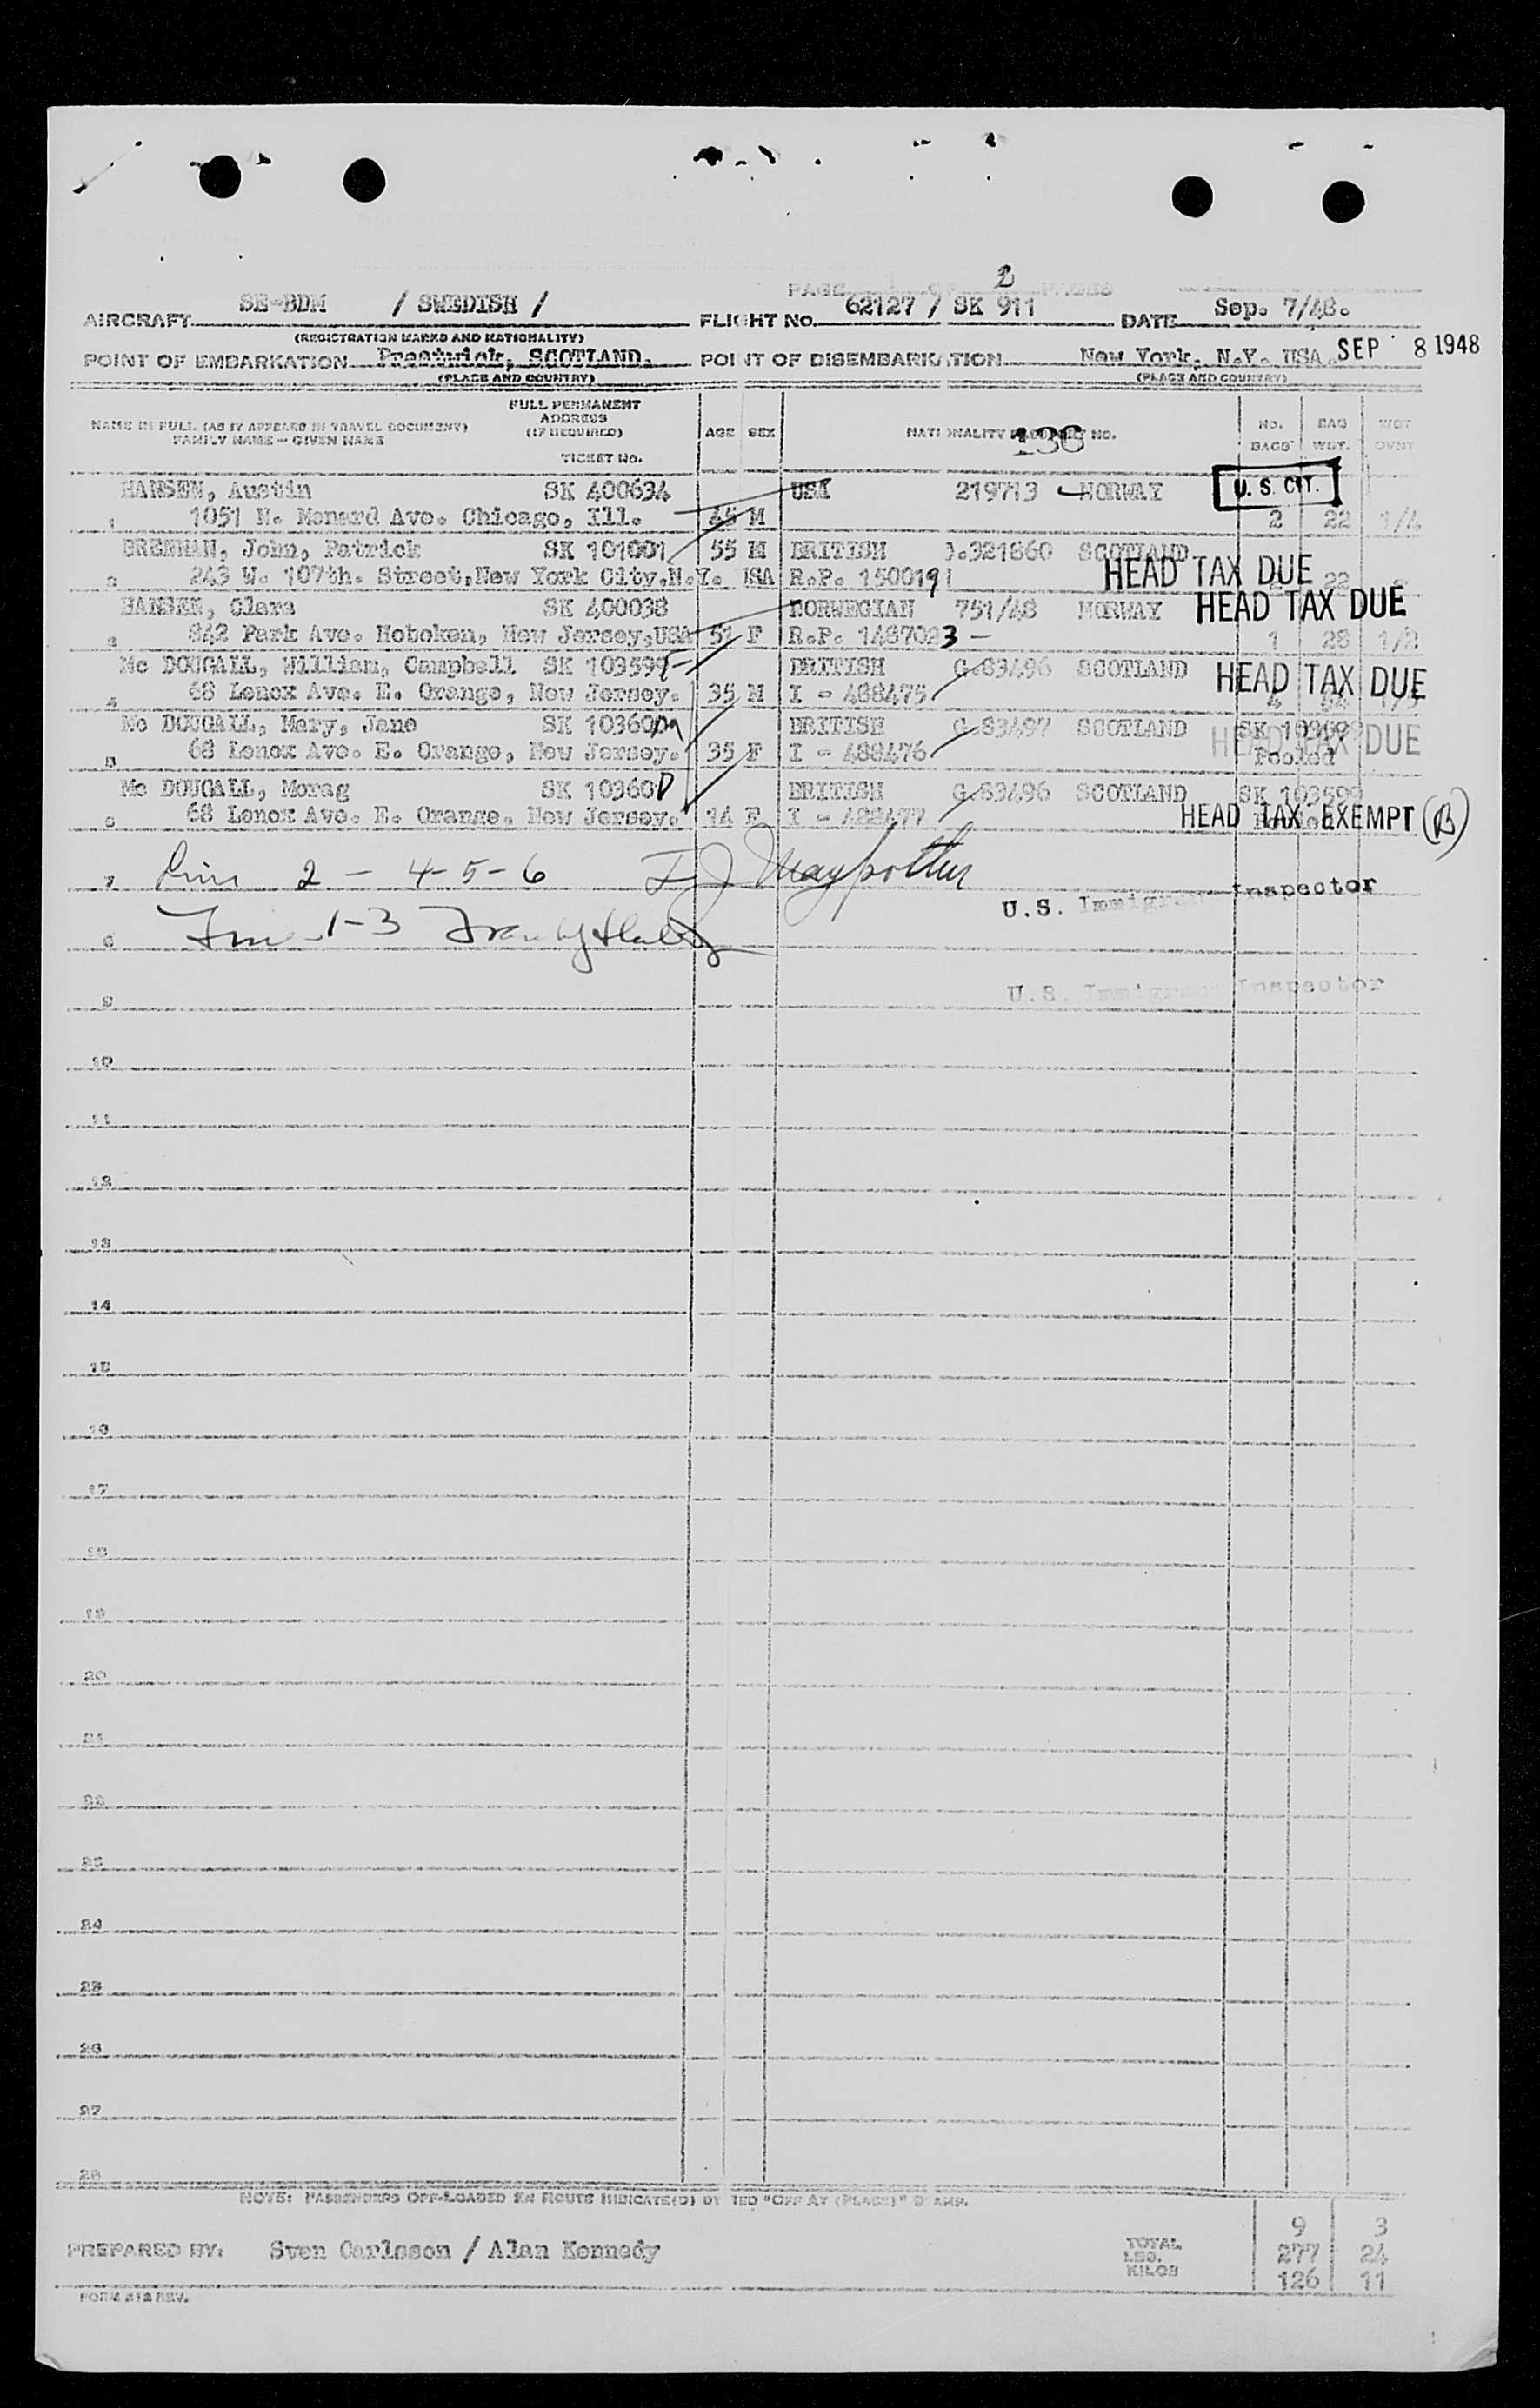 PAGE 2 PAGES
AIRCRAFT SE-BDM / SWEDISH / FLIGHT NO. 62127 / SK 911 DATE Sep. 7/48.
(REGISTRATION MARKS AND NATIONALITY)
POINT OF EMBARKATION Prestwick, SCOTLAND. POINT OF DISEMBARKATION New York, N.Y. USA. SEP 8 1948
(PLACE AND COUNTRY) (PLACE AND COUNTRY)
NAME IN FULL (AS IT APPEARS IN TRAVEL DOCUMENT)
FAMILY NAME - GIVEN NAME
FULL PERMANENT
ADDRESS
(IF REQUIRED)
TICKET NO.
AGE SEX NATIONALITY PASSPORT NO. 136 NO. BAGS BAG WGT. WGT OVWT
HANSEN, Austin SK 400634 USA 219713 NORWAY U. S. CIT.
1 1051 N. Menard Ave. Chicago, Ill. 45 M 2 22 1/4
BRENNAN, John, Patrick SK 101001 55 M BRITISH 321860 SCOTLAND HEAD TAX DUE
2 243 W. 107th. Street, New York City, N.Y. USA R.P. 1500191 22
HANSEN, Clara SK 400038 NORWEGIAN 751/48 NORWAY HEAD TAX DUE
3 842 Park Ave. Hoboken, New Jersey, USA 51 F R.P. 1487023 - 1 28 1/2
Mc DOUGALL, William, Campbell SK 103599 BRITISH G.83496 SCOTLAND HEAD TAX DUE
4 68 Lenox Ave. E. Orange, New Jersey. 35 M I - 488475 4
Mc DOUGALL, Mary, Jane SK 103600 BRITISH G.83497 SCOTLAND SK 103599 HEAD TAX DUE
5 68 Lenox Ave. E. Orange, New Jersey. 35 F I - 488476 Pooled
Mc DOUGALL, Morag SK 10360 BRITISH G.83496 SCOTLAND SK 103599
6 68 Lenox Ave. E. Orange, New Jersey. 1A F I - 488477 HEAD TAX EXEMPT (B)
7 2 - 4-5-6
U.S. Immigrant Inspector
8 1-3
9 U.S. Immigrant Inspector
10
11
12
13
14
15
16
17
18
19
20
21
22
23
24
25
26
27
28
NOTE: PASSENGERS OFF-LOADED EN ROUTE INDICATE(D) BY "OFF AT (PLACE)" STAMP.
9 3
PREPARED BY: Sven Carlsson / Alan Kennedy TOTAL
LBS. 277 24
KILOS 126 11
FORM 212 REV.